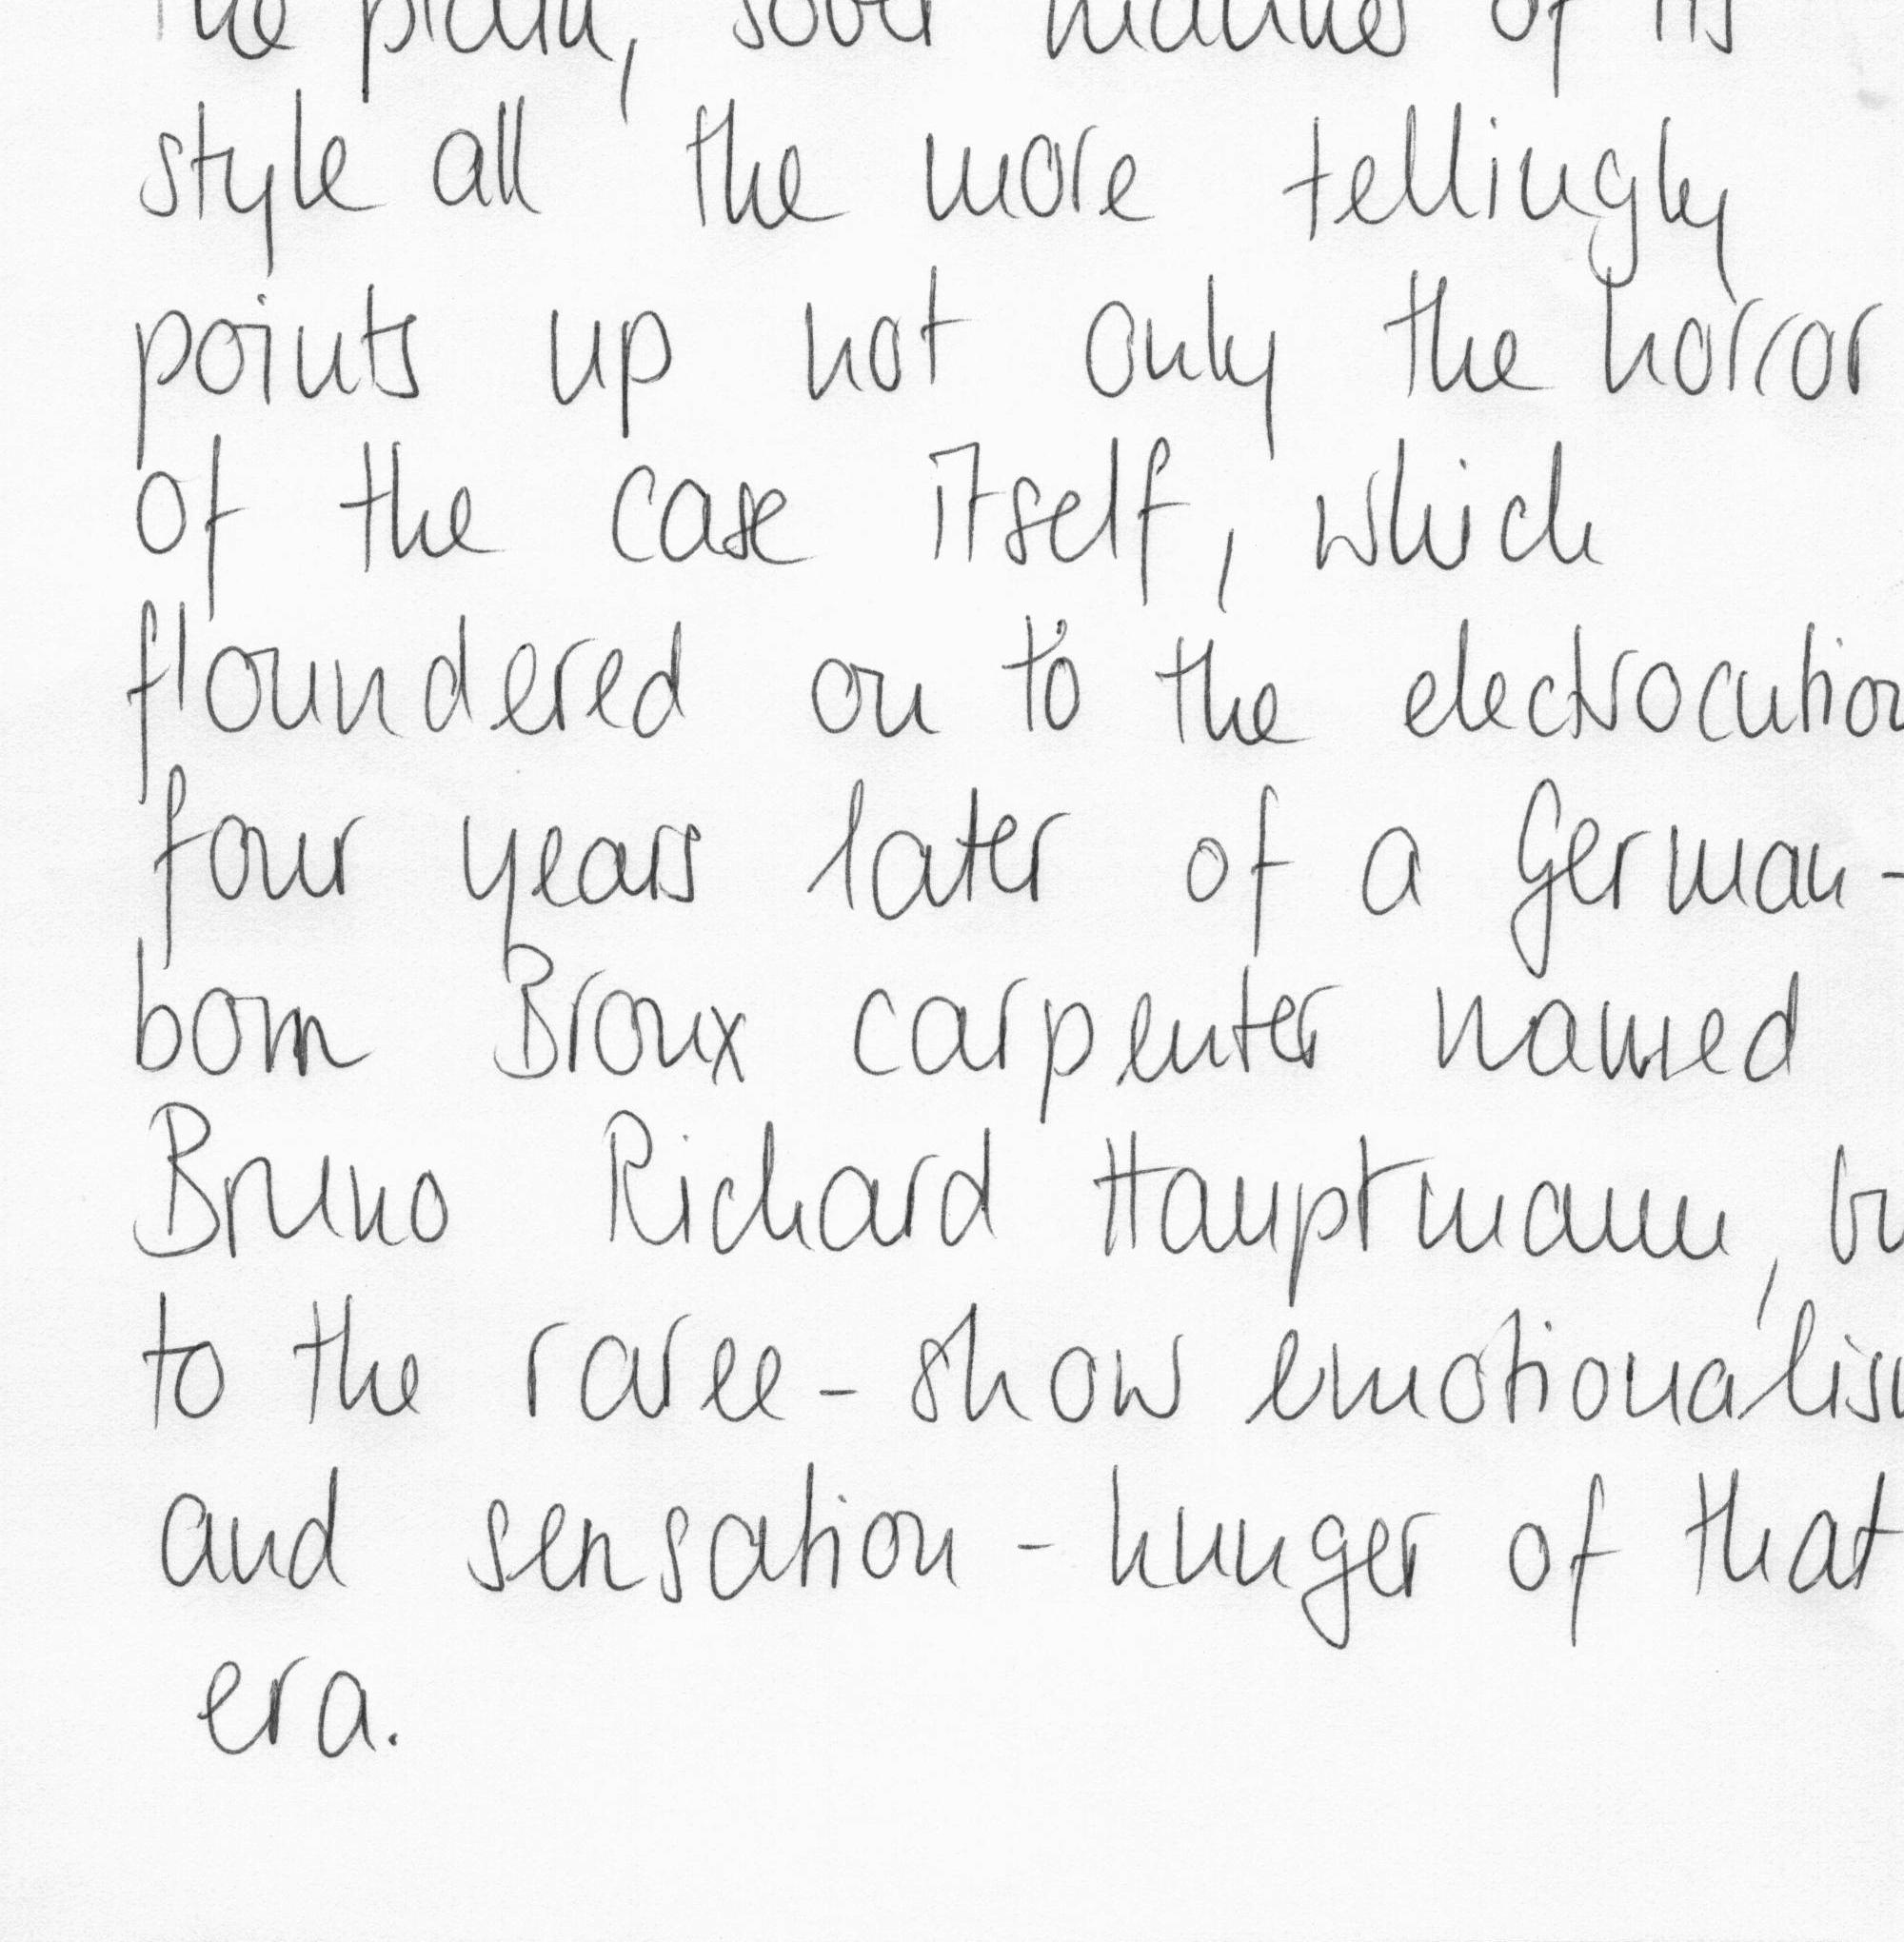 the plain, sober manner of its
style all the more tellingly
points up not only the horror
of the case itself, which
floundered on to the electrocution
four years later of a German-
born Bronx carpenter named
Bruno Richard Hauptmann,
to the raree-show emotionalism
and sensation-hunger of that
era.